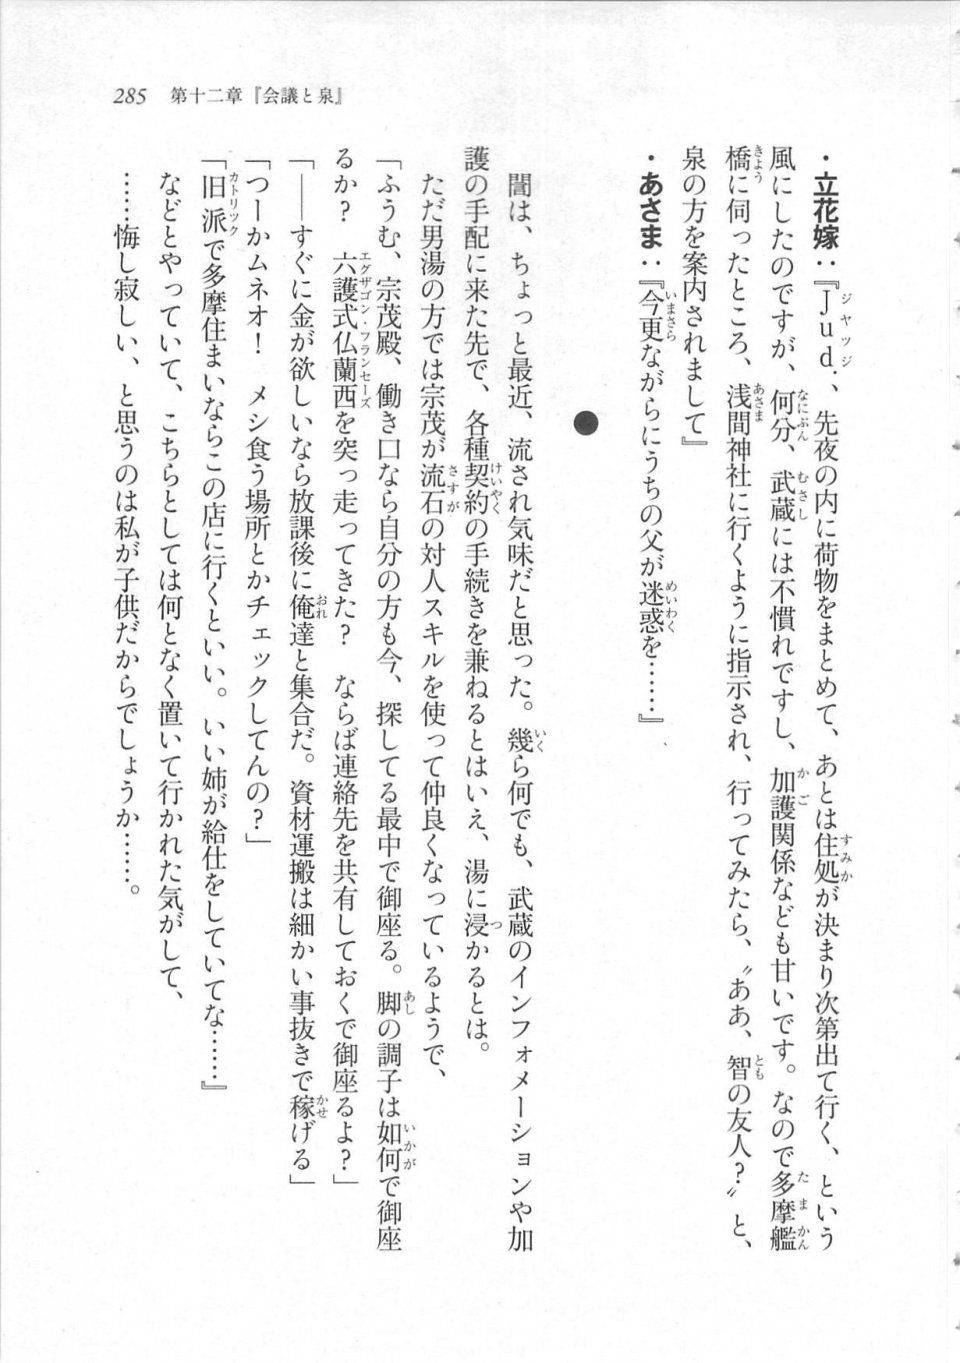 285　第十二章『会議と泉』
・立花嫁：『Jud.、先夜の内に荷物をまとめて、あとは住処が決まり次第出て行く、という
風にしたのですが、何分、武蔵には不慣れですし、加護関係なども甘いです。なので多摩艦
橋に伺ったところ、浅間神社に行くように指示され、行ってみたら、〝ああ、智の友人？〟と、
泉の方を案内されまして』
・あさま：『今更ながらにうちの父が迷惑を……』
●
　誾は、ちょっと最近、流され気味だと思った。幾ら何でも、武蔵のインフォメーションや加
護の手配に来た先で、各種契約の手続きを兼ねるとはいえ、湯に浸かるとは。
　ただ男湯の方では宗茂が流石の対人スキルを使って仲良くなっているようで、
「ふうむ、宗茂殿、働き口なら自分の方も今、探してる最中で御座る。脚の調子は如何で御座
るか？　六護式仏蘭西を突っ走ってきた？　ならば連絡先を共有しておくで御座るよ？」
「――すぐに金が欲しいなら放課後に俺達と集合だ。資材運搬は細かい事抜きで稼げる」
「つーかムネオ！　メシ食う場所とかチェックしてんの？」
「旧派で多摩住まいならこの店に行くといい。いい姉が給仕をしていてな……』
　などとやっていて、こちらとしては何となく置いて行かれた気がして、
　……悔し寂しい、と思うのは私が子供だからでしょうか……。